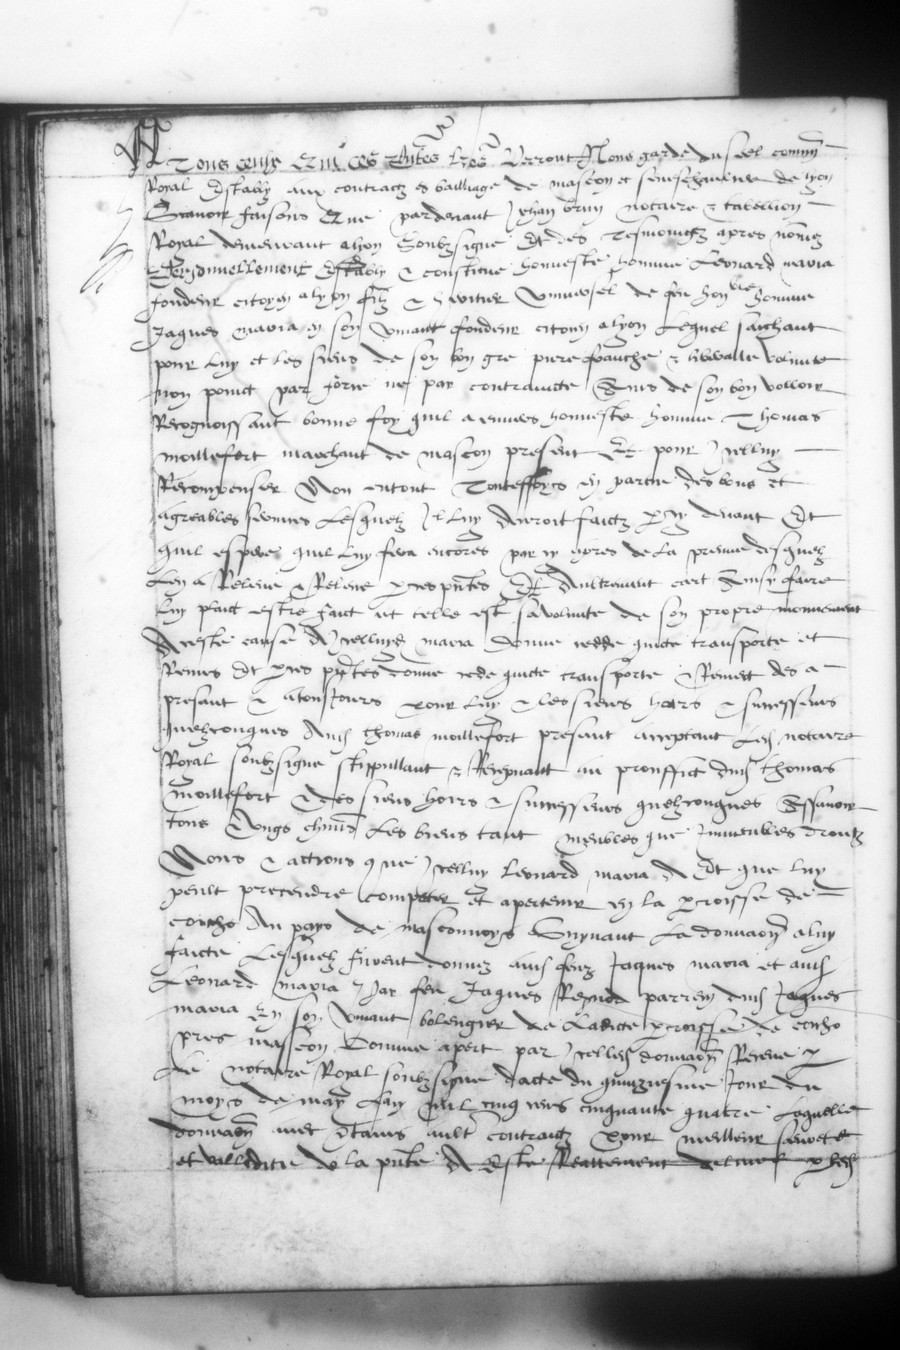 A Tous ceulx Qui ces pntes lres Verront Nous garde du seel commū
Royal Estably aux contractz es bailliage de mascon et seneschaucee de lyon
Scavoir faisons Que pardevant Jehan brun notaire & tabellion
Royal demeurant a lyon soubzsigne Et des Tesmoingz apres nōmez
Personnellement Estably & constitue honneste homme Leonard mavia
fondeur citoyen a lyon filz & heritier Universel de feu honble homme
Jaques mavia en son vivant fondeur citoien a lyon Lequel saichant
pour luy et les siens de son bon gre pure franche & liberalle volunte
non poinct par force ne par contraincte Ains de son bon volloir
Recognoissant bonne foy quil a envers honneste homme Thomas
moillefort marchant de mascon present Et pour Icelluy
Recompenser Non entout Touteffoys en partie des bons et
agreables services Lesquelz Il luy Auroit faictz cy devant Et
quil espere quil luy fera encores par cy apres de la preuve desquelz
Len a Releve & Releve p ces pntes Et Aultrement car Ainsi faire
luy plaict estre faict et telle est sa volunte de son propre mouvement
A ceste cause Icelluy mavia donne cedde quicte transporte et
Remect Et p ces pntes donne cede quicte transporte & Remect des a
present & a tousjours pour luy & les siens hoirs & successeurs
quelzconques Aud thomas moillefort present acceptant Led notaire
Royal soubzsigne stippullant & Recepvant au prouffict dud thomas
moillefort & des siens hoirs & successeurs quelzconques Assavoir
tous & ungs chūns Les biens tant meubles que Immeubles droictz
Noms & actions que Icelluy Leonard mavia A Et que luy
peult pretendre competer et apertenir en la parroisse de
au pays de masconnoys Suyvant La donnaon a luy
faicte Lesquelz furent donnez aud feuz Jaques mavia et aud
Leonard mavia par feu Jaques parrein dud Jaques
mavia En son vivant bolengier de Ladicte parroisse de
pres mascon Comme apert par Icelle donnaon Receue p
Le notaire Royal soubzsigne dacte du quinziesme Jour du
moys de may Lan mil cinq cens cinquante quatre Laquelle
donnaon avec aultres contractz pour meilleur seurete
et validitie de la pnte A Este